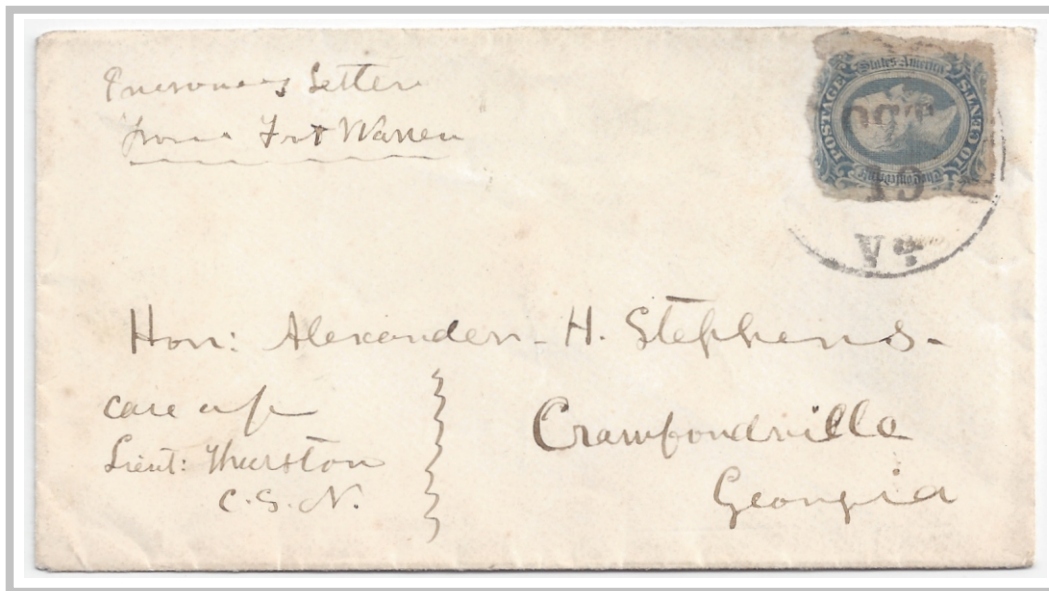 Prisoners Letter
from Fort Warren
POSTAGE
States America
10 CENTS
The Confederate
OCT
Va
Hon: Alexander - H. Stephens -
care of
Lieut: Thurston
C.S.N.
Crawfordville
Georgia